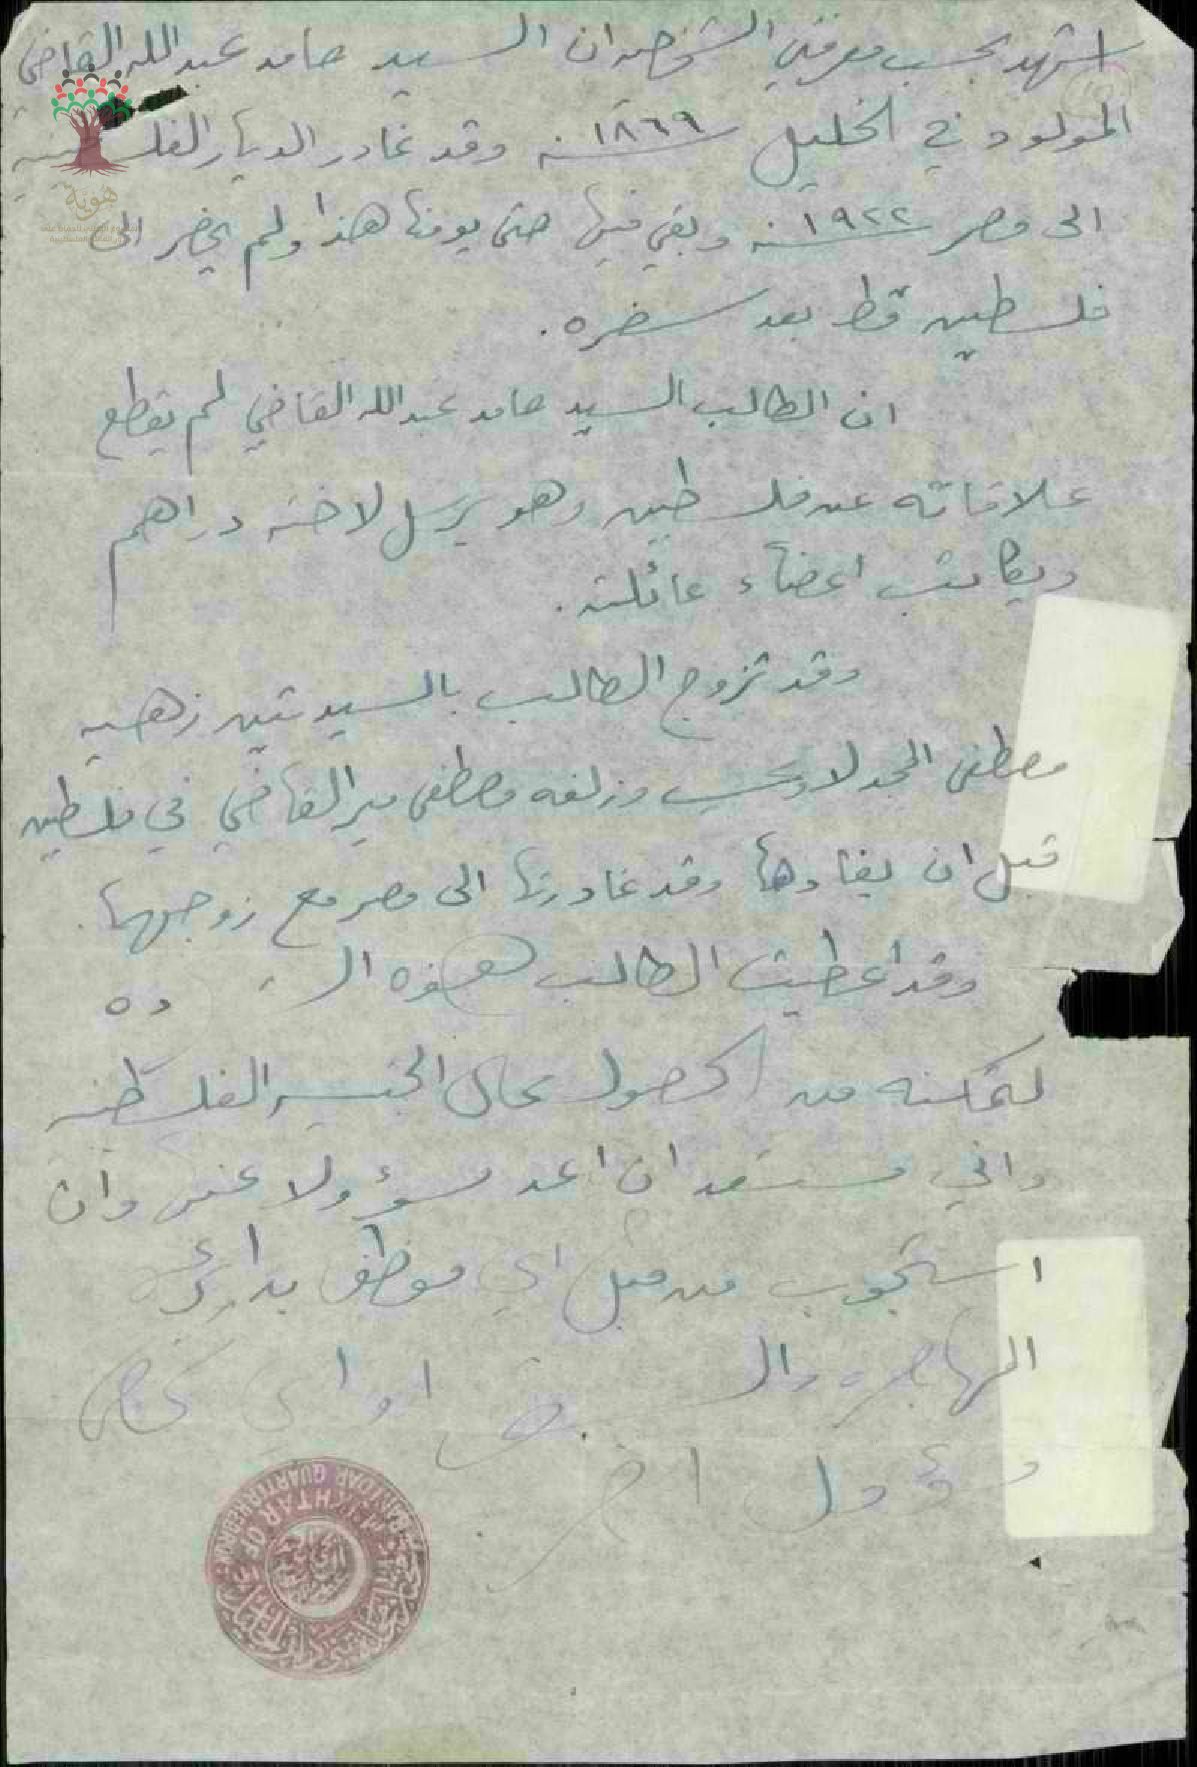 اشهد بحسب معرفتي الشخصية ان السيد حامد عبدالله القاضي
المولود في الخليل سنة ١٨٦٩ وقد غادر الديار
الى مصر سنة ١٩٢٢ وبقي فيها حتى يومنا هذا ولم يحضر الى
فلسطين قط بعد سفره .
ان الطالب السيد حامد عبدالله القاضي لم يقطع
علاقاته عن فلسطين وهو يرسل لاخته دراهم
ويكاتب اعضاء عائلته .
وقد تزوج الطالب بالسيدتين زهيه
مصطفى وزلفه مصطفى القاضي في فلسطين
قبل ان يغادرها وقد غادرتا الى مصر مع زوجهما .
وقد اعطيت الطالب هذه
لتمكينه من الحصول على الجنسية الفلسطينية
واني مستعد ان اعد مسؤولا عنه وان
استجوب من قبل اي موظف بدائرة
المهاجرة او اي
مسؤول اخر
MUKHTAR OF
هوية